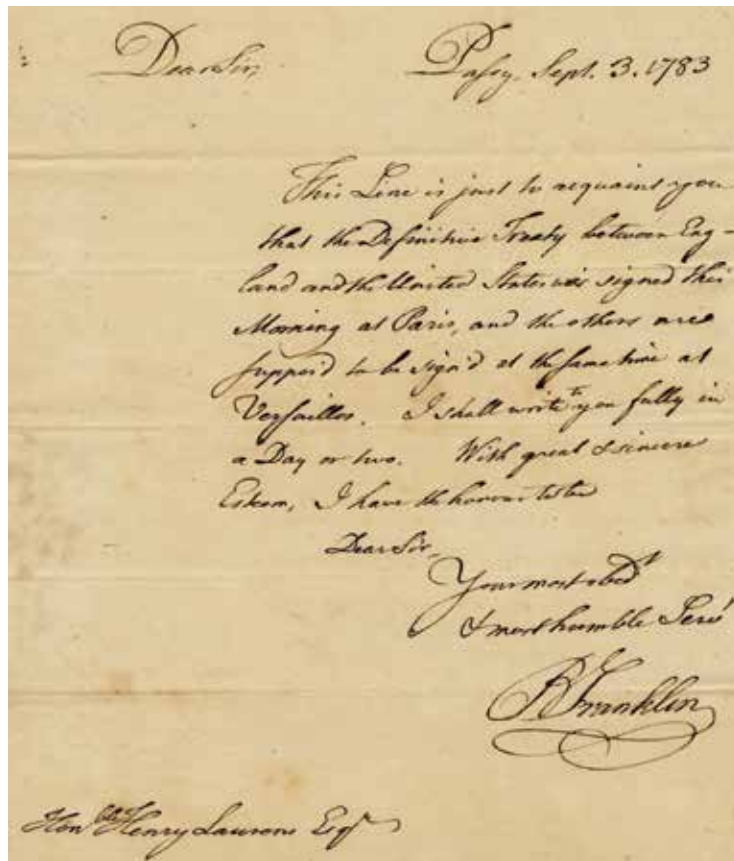 Dear Sir, Passy, Sept. 3. 1783
This Line is just to acquaint you
that the Definitive Treaty between Eng-
land and the United States was signed this
Morning at Paris, and the others are
suppos'd to be sign'd at the same time at
Versailles. I shall write to you fully in
a Day or two. With great & sincere
Esteem, I have the honour to be
Dear Sir,
Your most obedt
& most humble Servt
B Franklin
Honble Henry Laurens Esqr